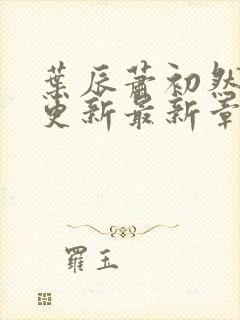 葉辰蕭初然
更新最新章
羅玉